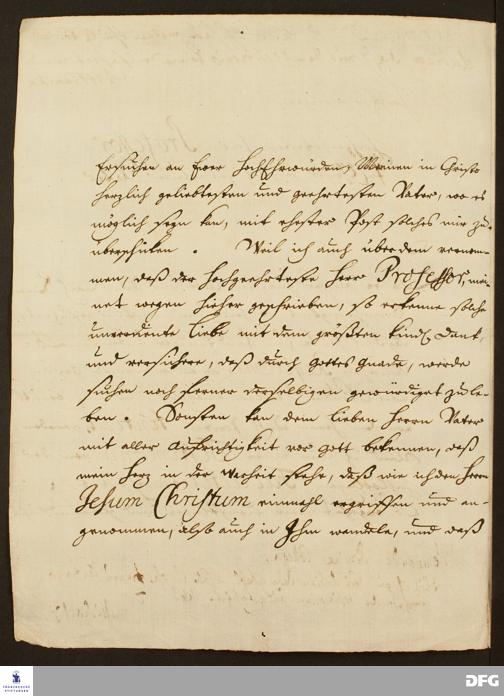 Ersuchen an Ewer HochEhrwürden, Meinen in Christo
herzlich geliebtesten und geehrtesten Vater, wo es
möglich seyn kan, mit ehester Post solches mir zu
überschicken. Weil ich auch über dem vernom-
men, daß der hochgeehrteste Herr Professor, mei-
net wegen hieher geschrieben, so erkenne solche
unverdiente Liebe mit dem größten kindl. Danck,
und versichere, daß durch Gottes Gnade, werde
suchen noch ferner derselbigen gewürdiget zu le-
ben. Sonsten kan dem lieben Herrn Vater
mit aller Aufrichtigkeit vor Gott bekennen, daß
mein Herz in der Warheit stehe, daß wie ich den Herrn
Jesum Christum einmahl ergriffen und an-
genommen, also auch in Ihm wandele, und daß
FRANCKESCHE STIFTUNGEN
DFG